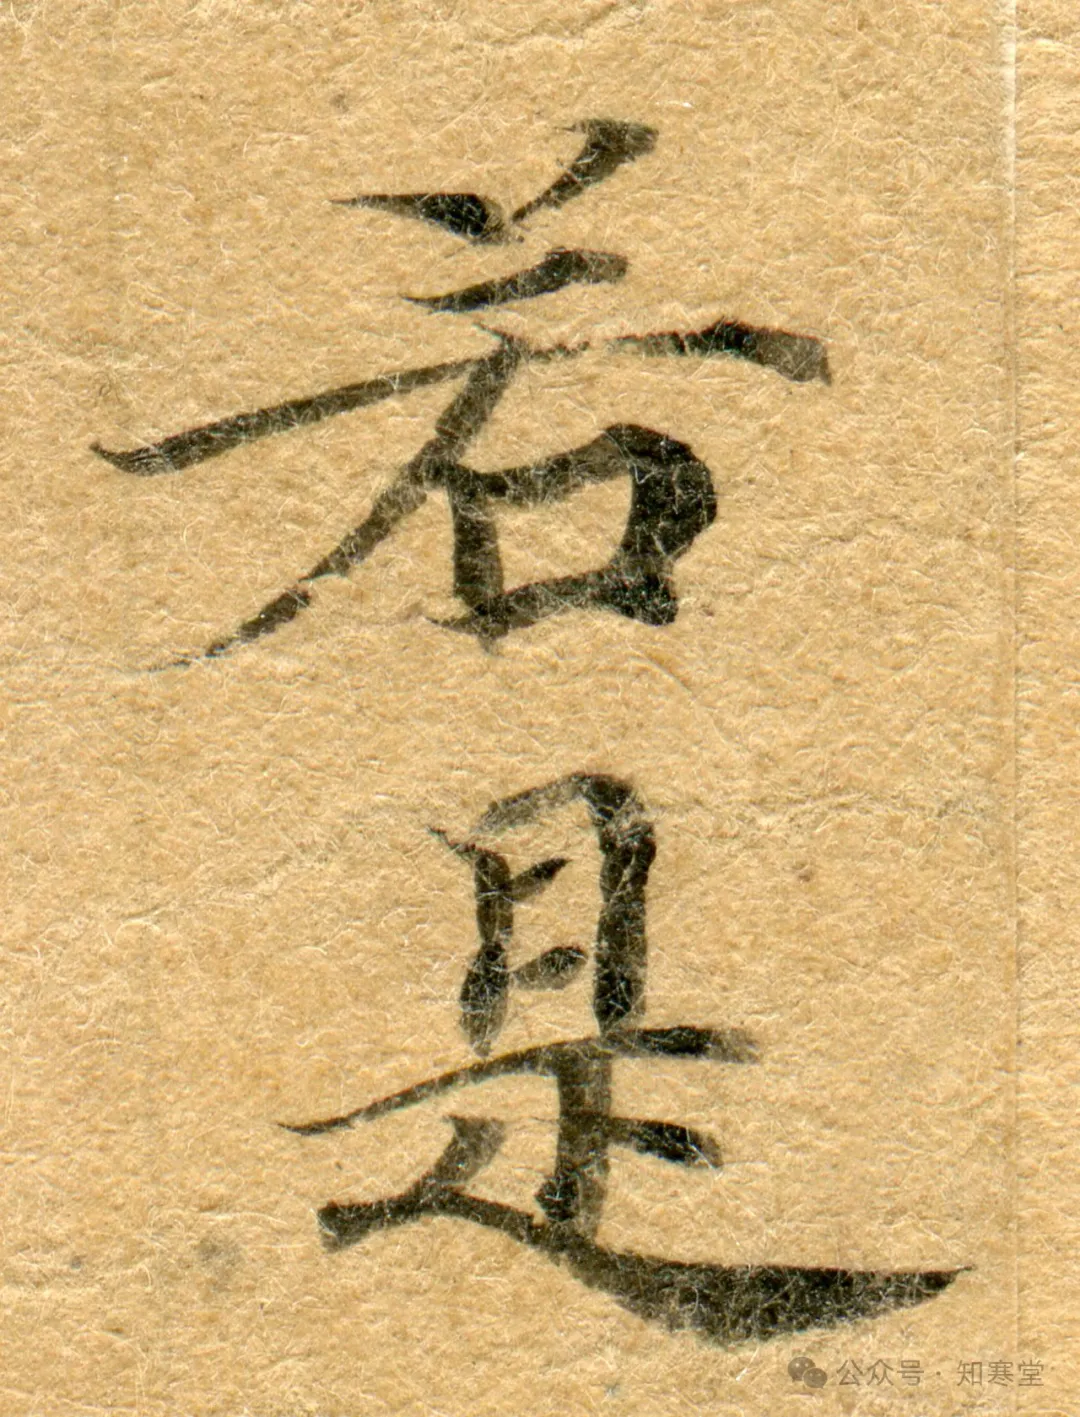 若是
公众号·知寒堂